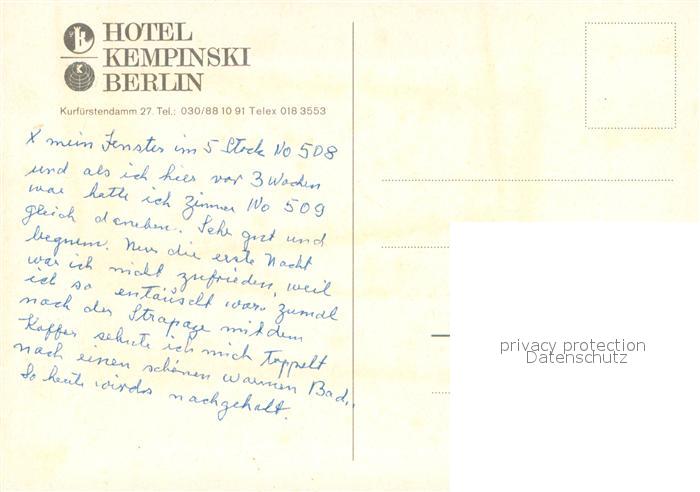 HOTEL
KEMPINSKI
BERLIN
Kurfürstendamm 27. Tel.: 030/88 10 91 Telex 018 3553
X mein Fenster im 5 Stock No 508
und als ich hier vor 3 Wochen
war hatte ich Zimmer No 509
gleich daneben. Sehr gut und
bequem. Nur die erste Nacht
war ich nicht zufrieden, weil
ich so entäuscht war. zumal
nach der Strapaze mit dem
Koffer sehnte ich mich toppelt
nach einen schönen warmen Bad..
So heute wirds nachgeholt.
privacy protection
Datenschutz